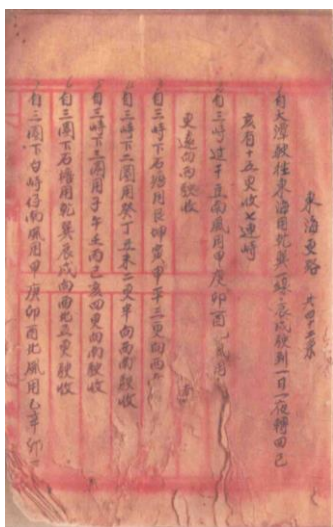 東海更路
自大潭駛往東海用乾巽一線辰戌駛到一日一夜轉回己
亥有十五更收七連峙
自三峙過干豆南風用甲庚卯酉
更遠向西駛收
自三峙下石塘用艮坤寅甲
自三峙下二圈用癸丁丑未二更半向西南駛收
自三峙下三圈用子午壬丙己亥四更向南駛收
自三圈下石塘用乾巽辰戌向西北五更駛收
自三圈下白峙仔南風用甲庚卯酉北風用乙辛卯